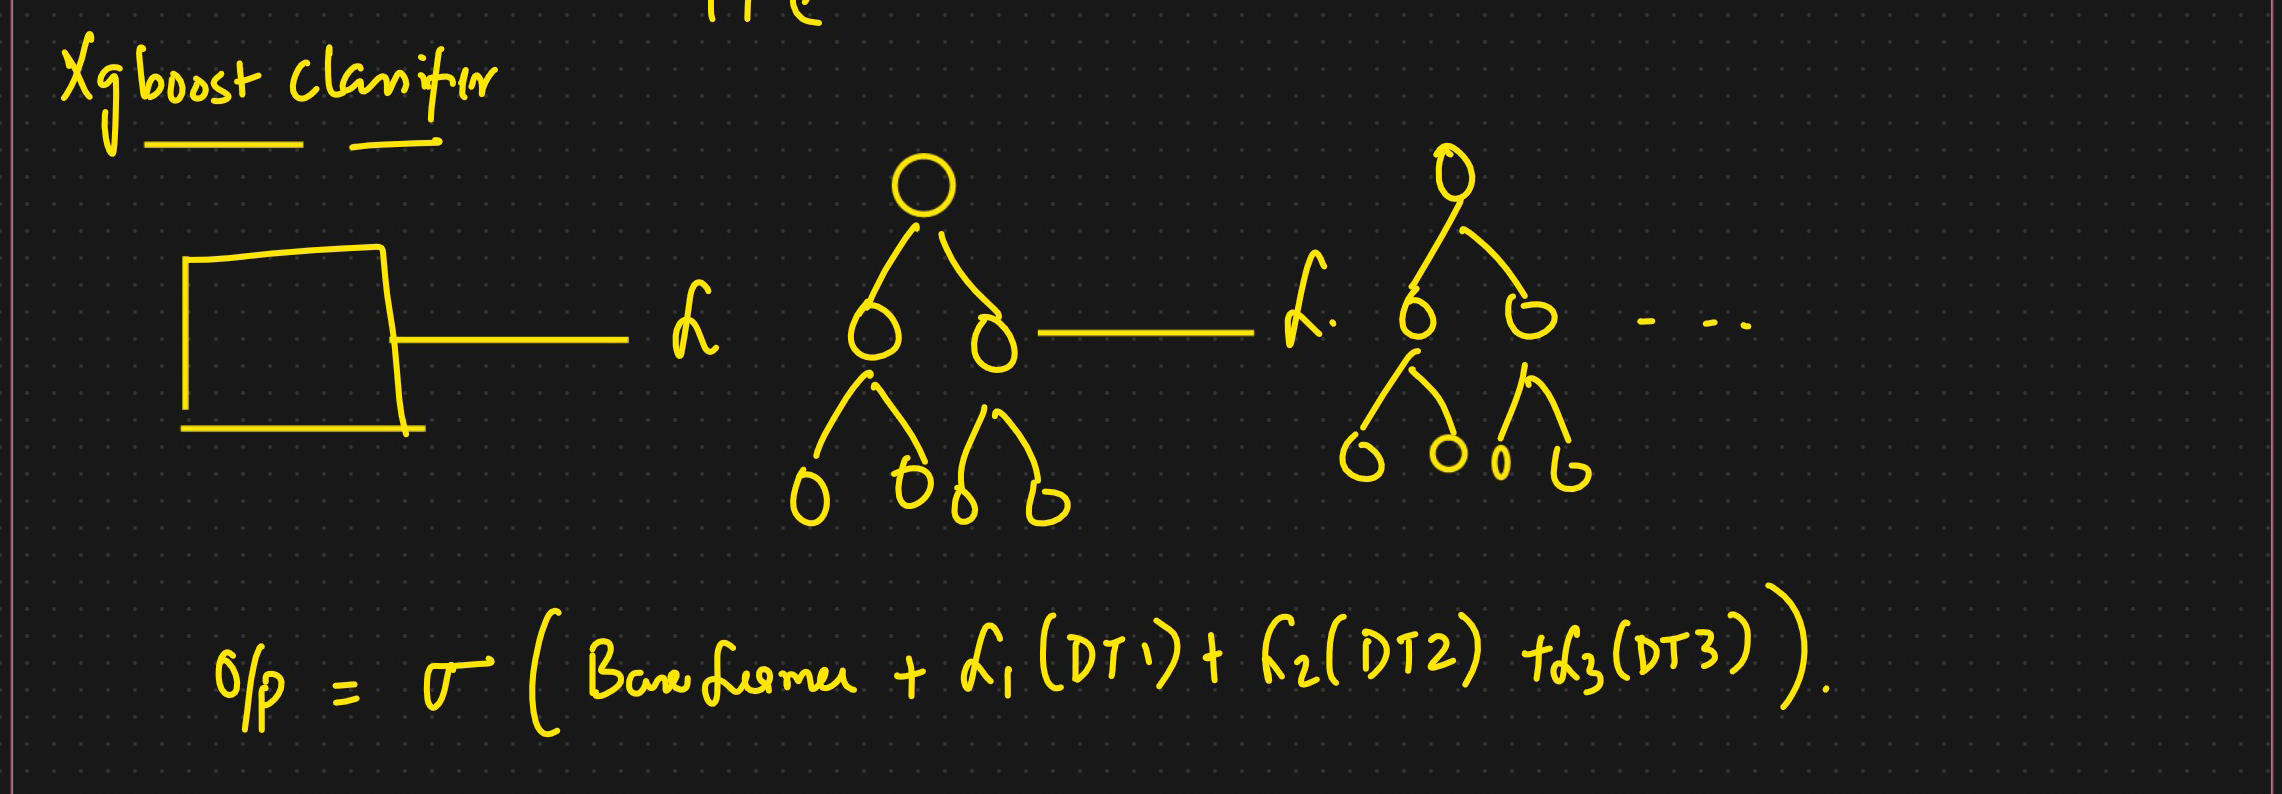 Xgboost Classifier
α
α.
O/p = σ ( Base learner + α₁ (DT1) + α₂ (DT2) + α₃ (DT3) ).